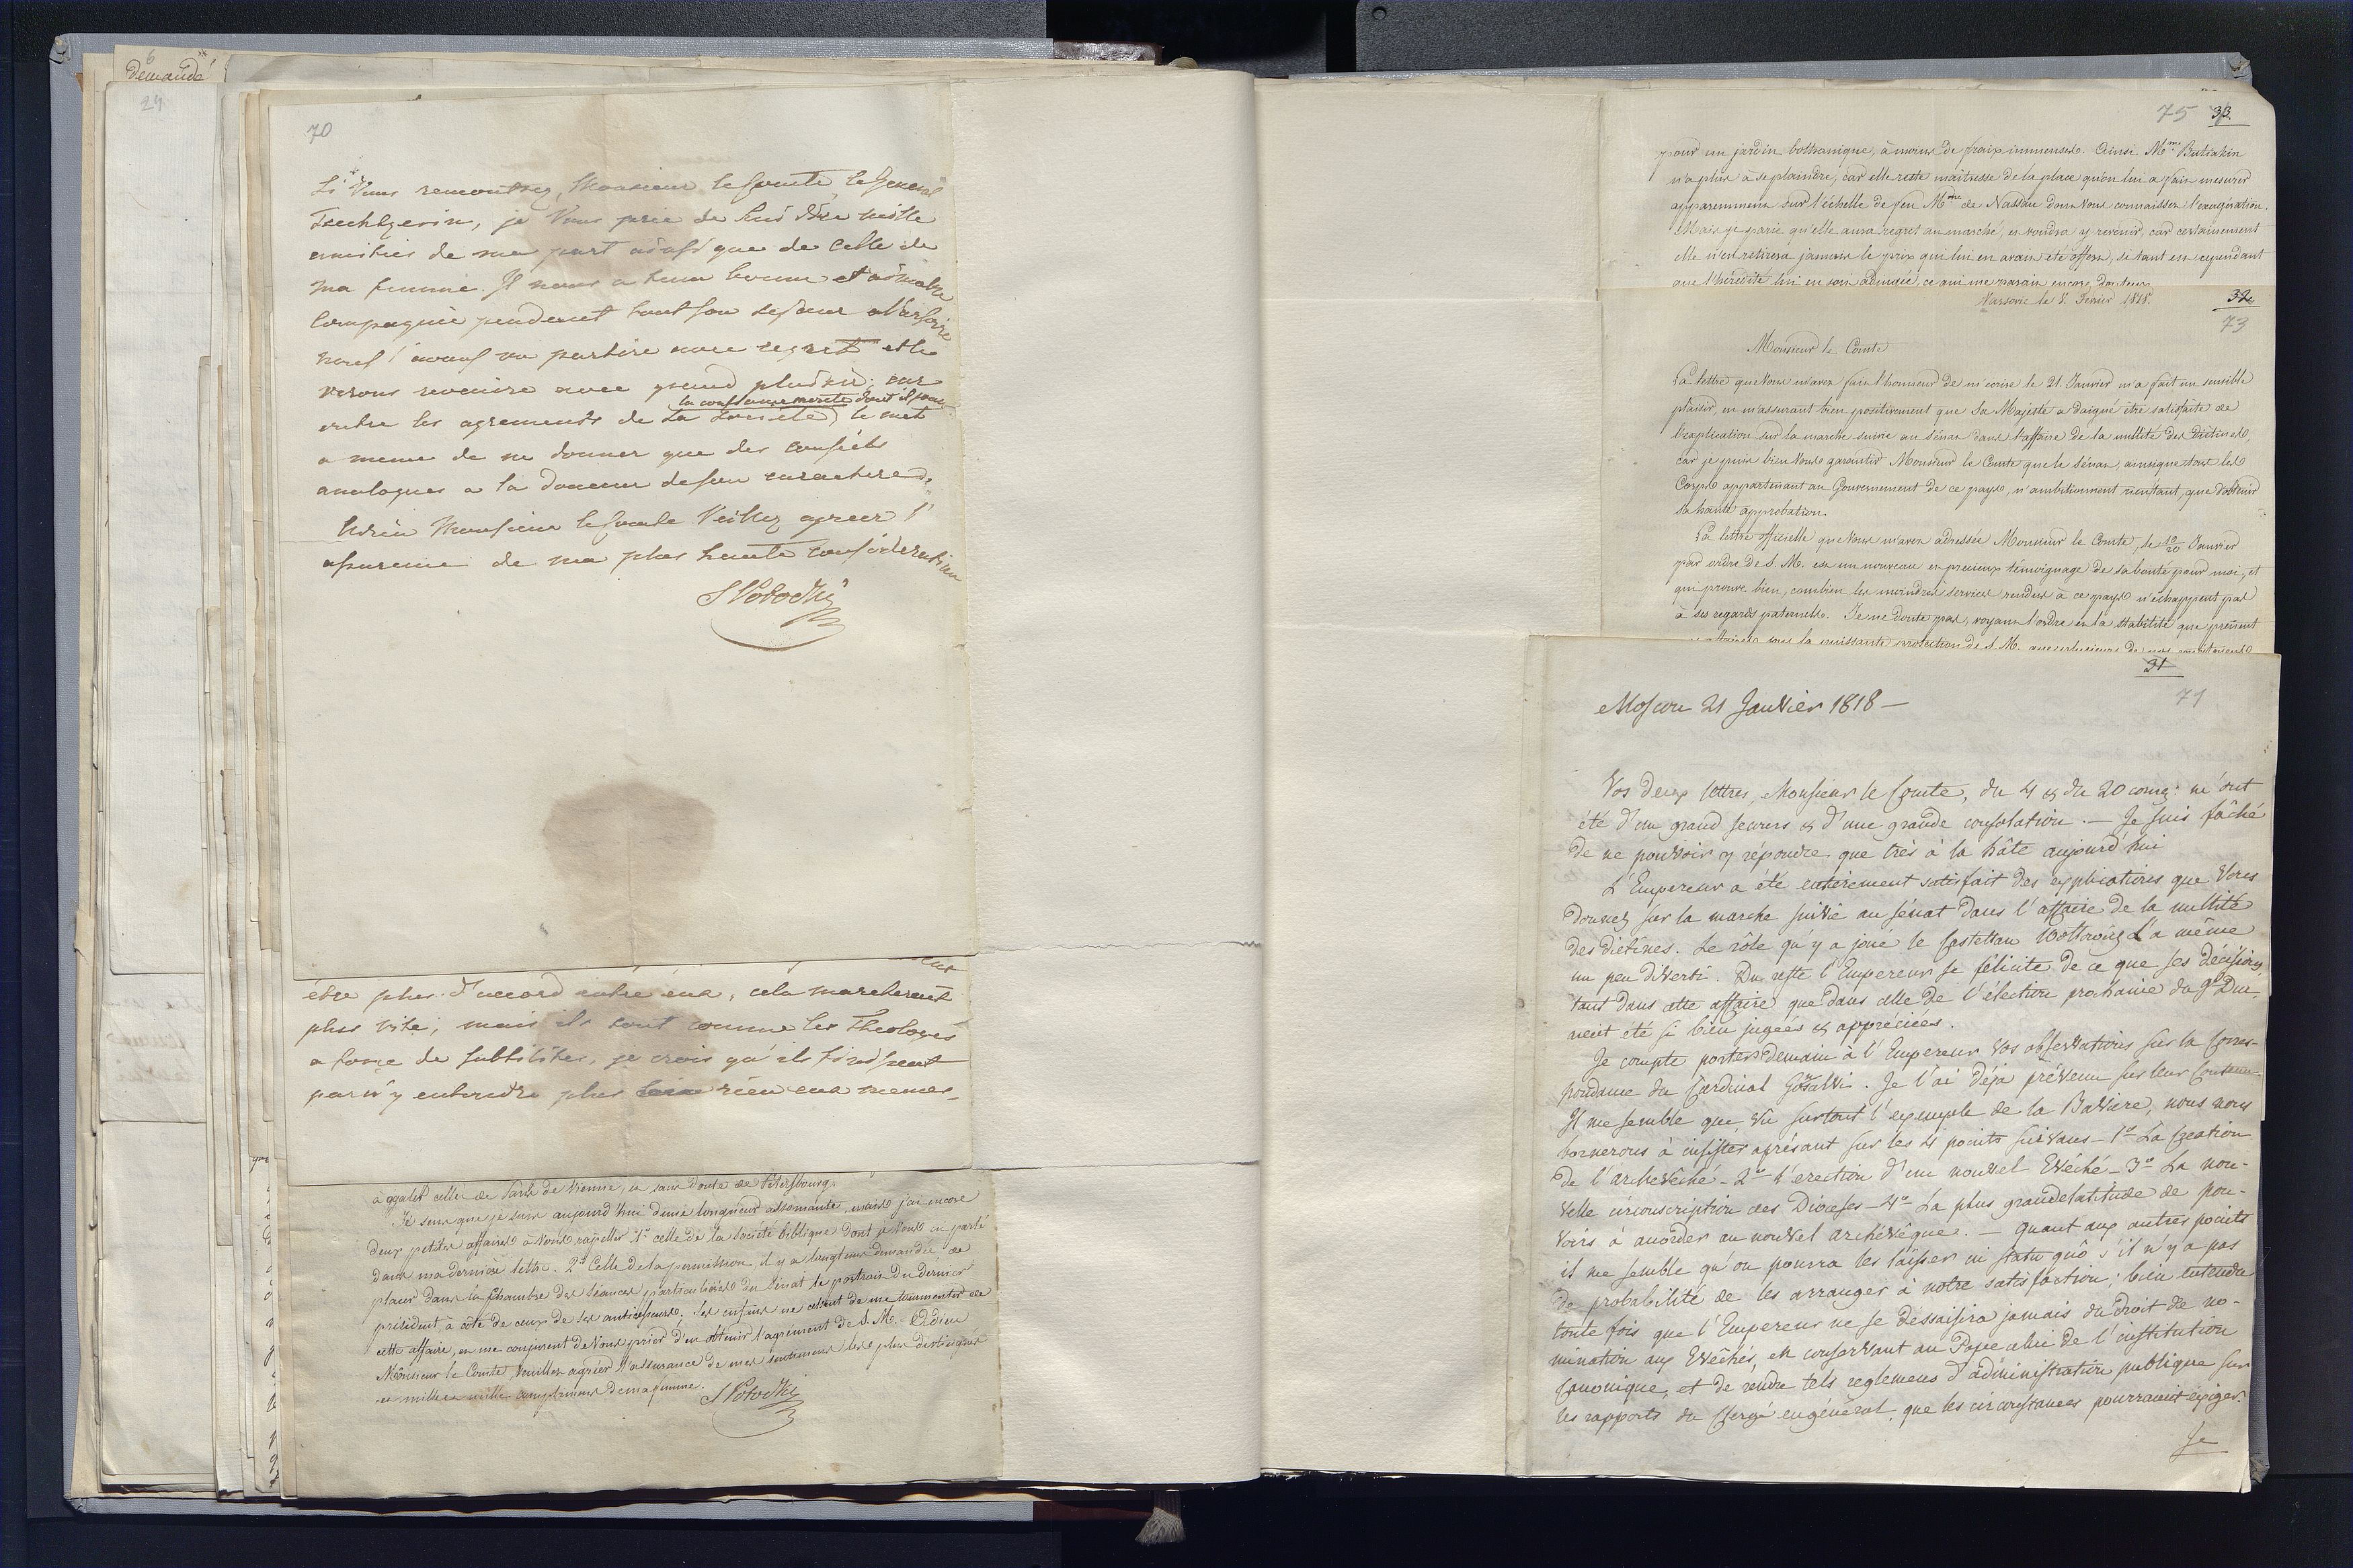 demandé
24
70
Si Vous remontrez, Monsieur le Comte le General
je Vous prie de lui dire mille
amitiés de ma part ainsi que de celle de
ma femme. Il nous a tenu bonne et aimable
compagnie pendenet tout son sejour a Varsovie
nous l'avons vu partire avec regret et le
verons revenire avec grand plaisir; car
la confiance merité dont il jouit
outre les agrements de la Societé, le met
a meme de ne donner que des conseils
analogues a la douceur de son caractere.
Adieu Monsieur le Comte Veillez agreer l'
assurence de ma plus haute consideration
SPotocki
être plus d'accord entre eux, cela marcherait
plus vite; mais ils sont comme les Theologes
a force de subtilités, je crois qu'ils finissent
par n'y entendre plus rien eux memes.
à égaler celles de Paris de Vienne, et sans doute de Pétersbourg.
Je sens que je suis aujourd'hui d'une longueur assomante, mais j'ai encore
deux petites affaires à Vous rapeller 1º celle de la Société biblique dont je Vous ai parlé
dans ma dernière lettre. 2º Celle de la permission, il y a longtems demandée, de
placer dans la Chambre des Séances particulières du Sénat le portrait du dernier
président, à côté de ceux de ses antécesseurs; ses enfans ne cessent de me tourmenter de
cette affaire, en me conjurent de Vous prier d'en obtenir l'agrément de S. M. Adieu
Monsieur le Comte, Veuillez agréer l'assurance de mes sentimens les plus distingués
et mille et mille complimens de ma femme.
SPotocki
75 33.
pour un jardin bothanique, à moins de fraix immenses. Ainsi Mme Butiakin
n'a plus à se plaindre, car elle reste maitresse de la place qu'on lui a fait mesurer
apparemment sur l'échelle de feu Mme de Nassau dont Vous connaissez l'exagération.
Mais je parie qu'elle aura regret au marché, et voudra y revenir, car certainement
elle n'en retirera jamais le prix qui lui en avait été offert, si tant est cependant
que l'hérédité lui en soit adjugée, ce qui me parait encore douteux
32
Varsovie le 8. Février 1818.
73
Monsieur le Comte
La lettre que Vous m'avez fait l'honneur de m'écrire le 21. Janvier m'a fait un sensible
plaisir, en m'assurant bien positivement que Sa Majesté a daigné être satisfaite de
l'explication sur la marche suivie au Sénat dans l'affaire de la nullité des Diétines,
car je puis bien Vous garantir Monsieur le Comte que le Sénat, ainsi que tout les
Corps appartenant au Gouvernement de ce pays, n'ambitionnent rien tant, que d'obtenir
sa haute approbation.
La lettre officielle que Vous m'avez adressée Monsieur le Comte, le Janvier
par ordre de S. M. est un nouveau et precieux témoignage de sa bonté pour moi, et
qui prouve bien, combien les moindres services rendus à ce pays n'échappent pas
à ses regards paternels. Je ne doute pas, voyant l'ordre et la stabilité que prennent
sous la puissante protection de S. M. que plusieurs de nos
31
71
Moscou 21 Janvier 1818 —
Vos deux lettres, Monsieur le Comte, du 4 & du 20 cour: m'ont
été d'un grand secours & d'une grande consolation. — Je suis fâché
de ne pouvoir y répondre que très à la hâte aujourd'hui
L'Empereur a été entièrement satisfait des explications que Vous
donnez sur la marche suivie au sénat dans l'affaire de la nullité
des diétines. Le rôle qu'y a joué le Castellan l'a même
un peu diverti. Du reste l'Empereur se félicite de ce que ses décisions
tant dans cette affaire que dans celle de l'élection prochaine du Gd Duc
aient été si bien jugées & appréciées.
Je compte porter demain à l'Empereur Vos observations sur la Corres-
pondance du Cardinal Gonsalvi. Je l'ai déja prévenu sur leur
Il me semble que, vu surtout l'exemple de la Bavière, nous nous
bornerons à insister àprésant sur les 4 points suivans — 1º La Création
de l'archevêché — 2º L'erection d'un nouvel Evêché — 3º La nou-
velle circonscription des Diocèses — 4º La plus grande latitude de pou-
voirs à accorder au nouvel archévêque. — Quant aux autres points
il me semble qu'on pourra les laisser in statu quô s'il n'y a pas
de probabilité de les arranger à notre satisfaction; bien entendu
toute fois que l'Empereur ne se dessaisira jamais du droit de no-
mination aux Evêchés, en conservant au Pape celui de l'institution
Canonique, et de rendre tels reglemens d'administration publique sur
les rapports du Clergé engénéral, que les circonstances pourraient exiger.
Je